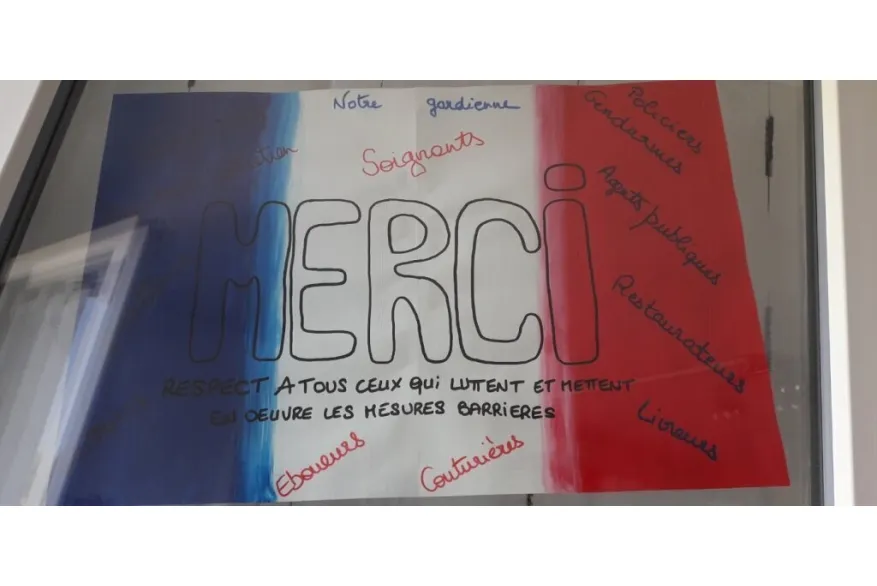 Notre gardienne
Soignants
Policiers
Gendarmes
Agents publiques
MERCi
Restaurateurs
RESPECT A TOUS CEUX Qui LUTTENT ET METTENT
EN OEUVRE LES MESURES BARRiERES
Livreurs
Eboueurs
Couturières